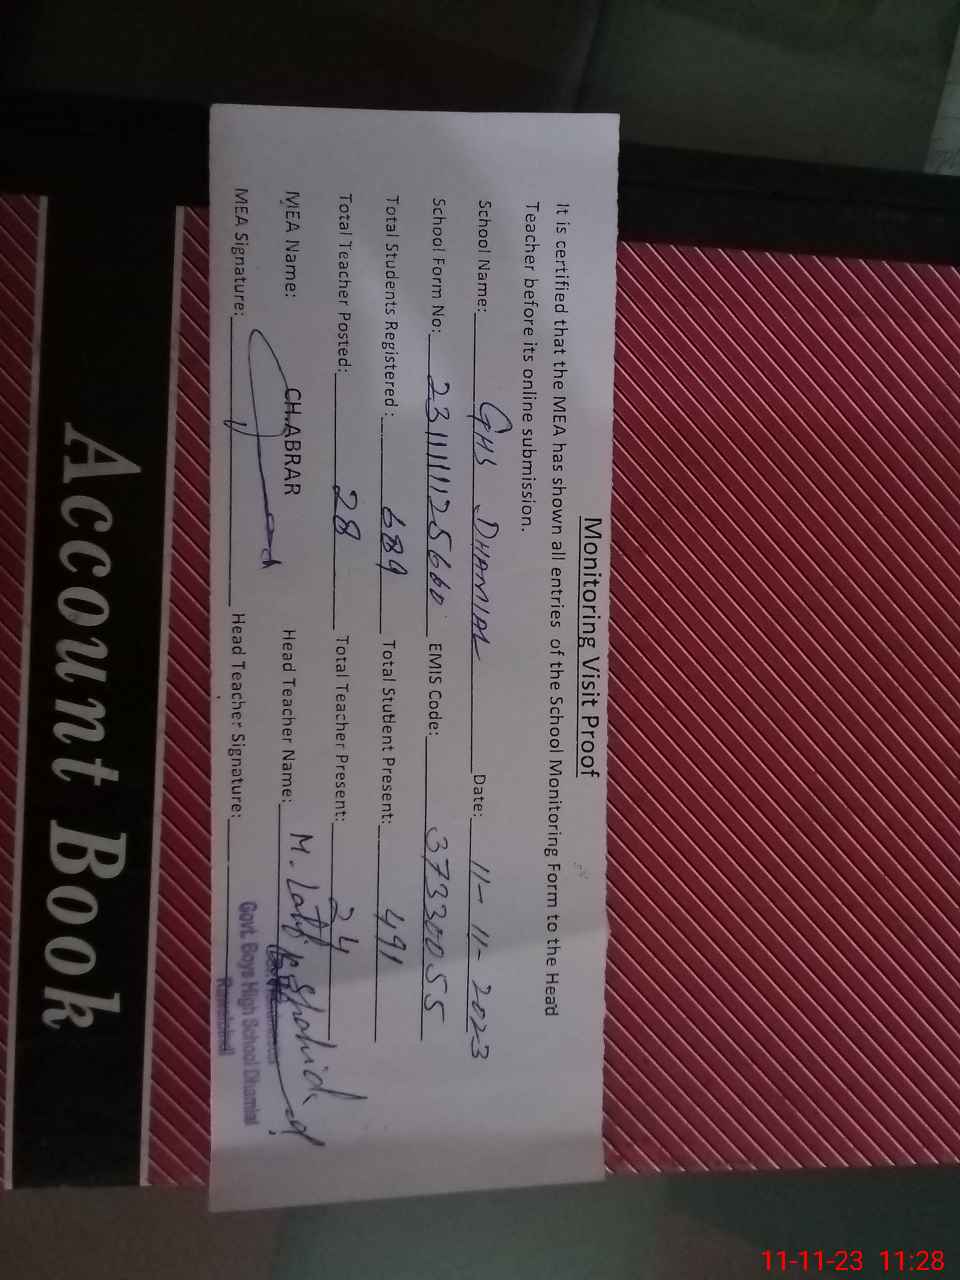 Monitoring Visit Proof
It is certified that the MEA has shown all entries of the School Monitoring Form to the Head
Teacher before its online submission.
School Name: GHS DHAMIAL Date: 11-11-2023
School Form No: EMIS Code: 37330055
Total Students Registered: 689 Total Student Present: 491
Total Teacher Posted: 28 Total Teacher Present: 24
MEA Name: CH.ABRAR Head Teacher Name: M. Latif Shahid
MEA Signature: Head Teacher Signature:
Govt. Boys High School Dhamial
Rawalpindi
Account Book
11-11-23 11:28